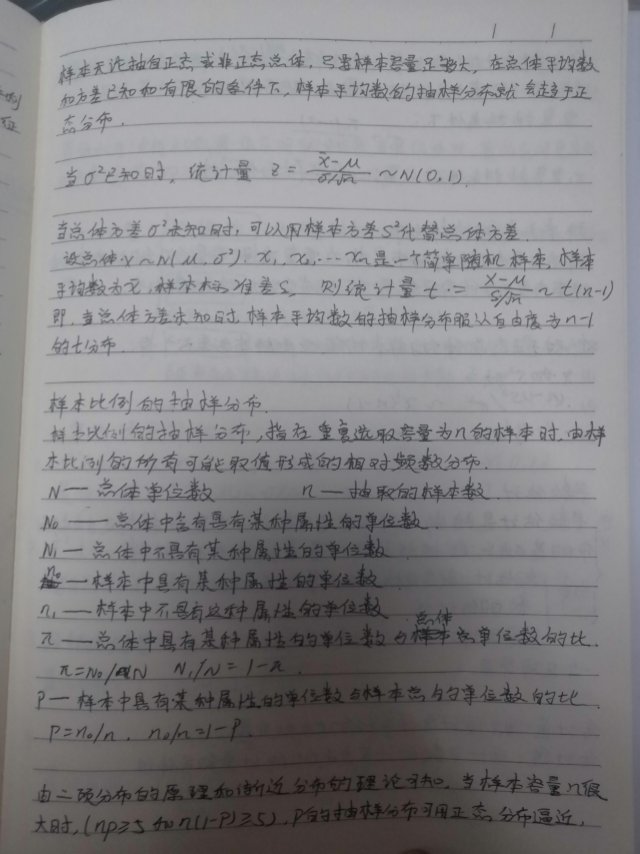 样本无论抽自正态或非正态总体，只要样本容量足够大，在总体平均数
和方差已知如有限的条件下，样本平均数的抽样分布就会趋于正
态分布．
当σ²已知时，统计量 z = (x̄-μ)/(σ/√n) ~N(0,1).
当总体方差σ²未知时，可以用样本方差S²代替总体方差．
设总体X~N(μ,σ²), x₁,x₂,…xn是一个简单随机样本，样本
平均数为x̄，样本标准差S，则统计量 t = (x̄-μ)/(S/√n) ~ t(n-1)
即，当总体方差未知时，样本平均数的抽样分布服从自由度为n-1
的t分布．
样本比例的抽样分布．
样本比例的抽样分布，指在重复选取容量为n的样本时，由样
本比例的所有可能取值形成的相对频数分布．
N — 总体单位数 n — 抽取的样本数．
N₀ — 总体中含有具有某种属性的单位数．
N₁ — 总体中不具有某种属性的单位数
n₀ — 样本中具有某种属性的单位数
n₁ — 样本中不具有这种属性的单位数
π — 总体中具有某种属性的单位数与总体总单位数的比．
π=N₀/N N₁/N=1-π．
P — 样本中具有某种属性的单位数与样本总的单位数的比．
P=n₀/n． n₀/n=1-P．
由二项分布的原理和渐近分布的理论可知，当样本容量n很
大时，(np≥5和n(1-P)≥5)，P的抽样分布可用正态分布逼近，